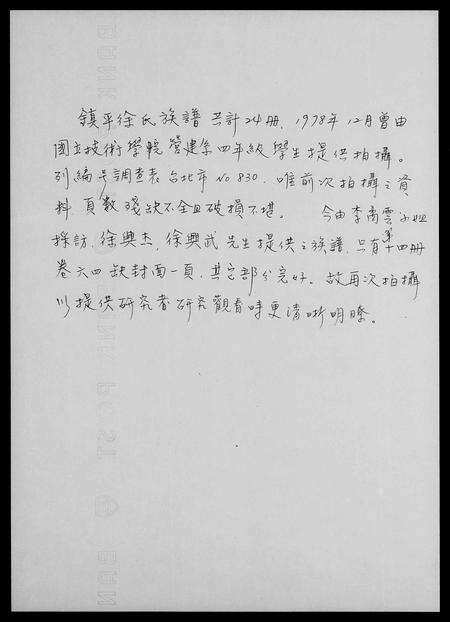 鎮平徐氏族譜共計24冊,1978年12月曾由
國立技術學院營建系四年級學生提供拍攝。
列編号調查表台北市No 830,唯前次拍攝之資
料,頁數殘缺不全且破損不堪。 今由李喬雲小姐
採訪,徐興杰,徐興武先生提供之族譜,只有第十四冊
卷六四缺封面一頁,其它部分完好。故再次拍攝
以提供研究者研究觀看時更清晰明瞭。